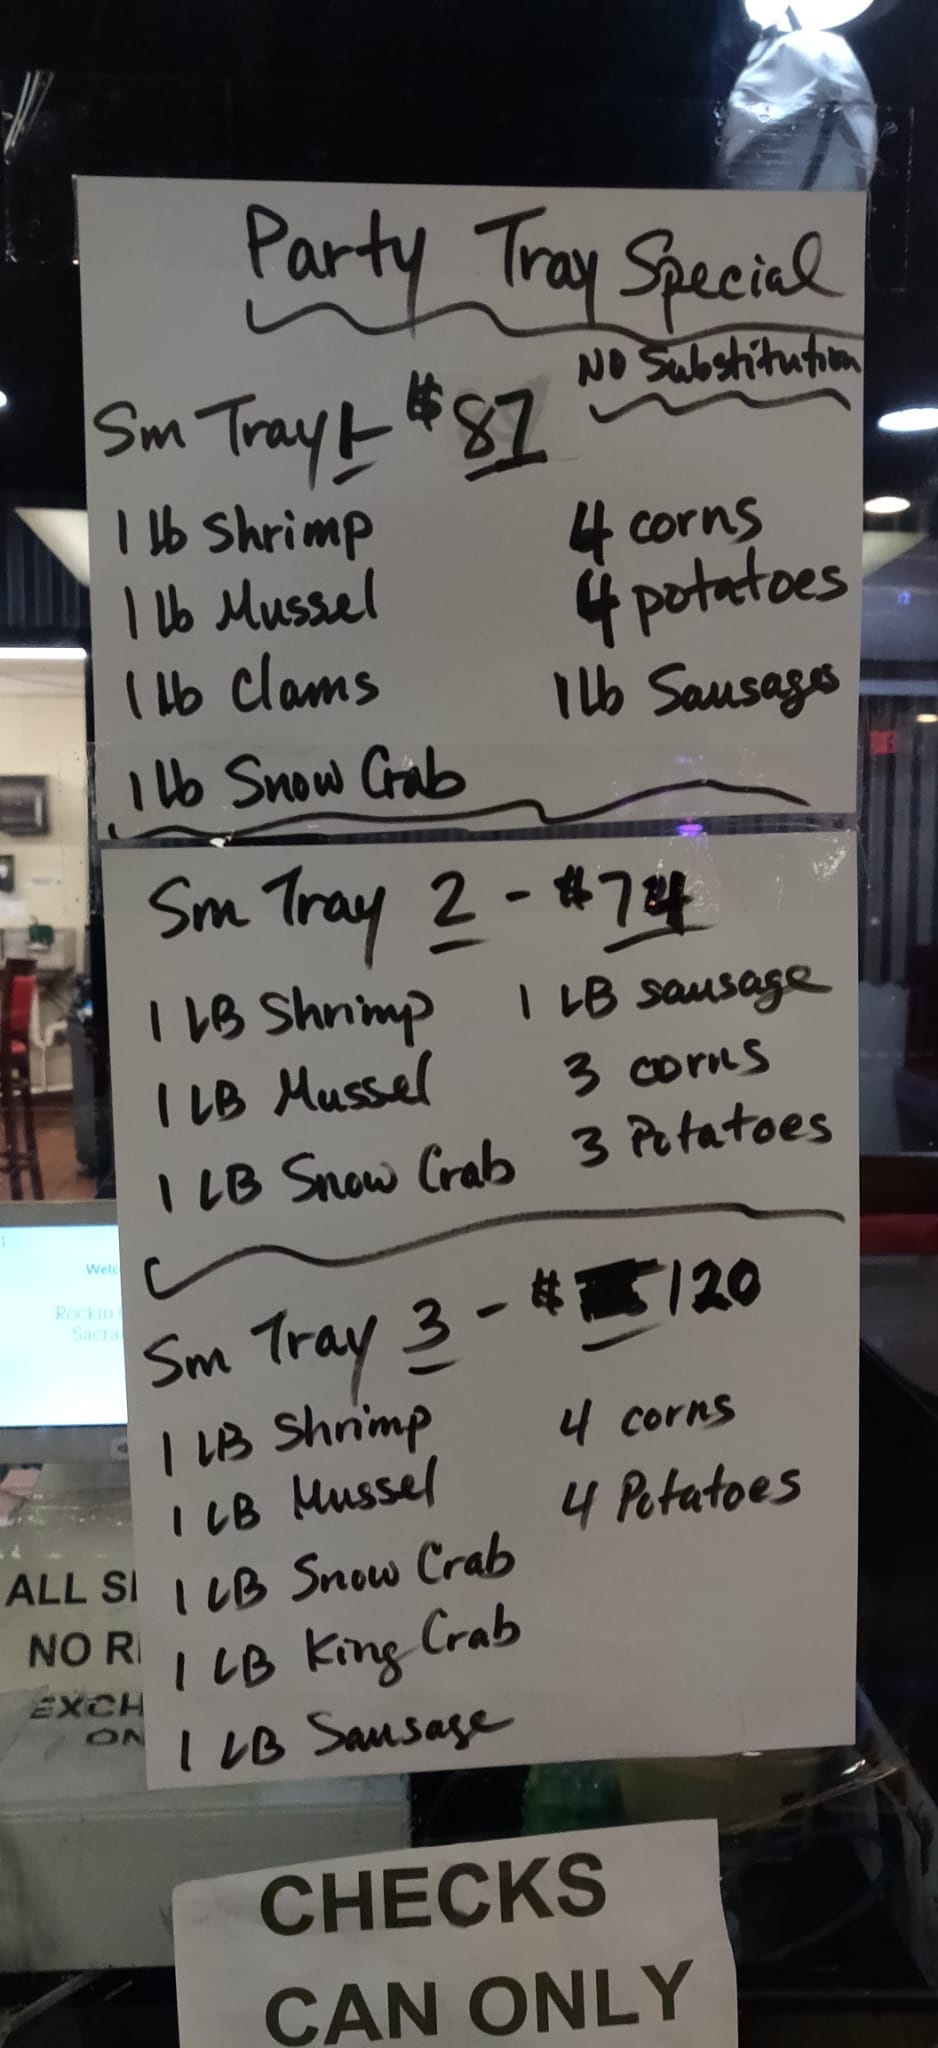 Party Tray Special
No Substitution
Sm Tray 1 - $87
1 lb Shrimp
1 lb Mussel
1 lb Clams
1 lb Snow Crab
4 corns
4 potatoes
1 lb Sausages
Sm Tray 2 - $74
1 LB Shrimp
1 LB Mussel
1 LB Snow Crab
1 LB sausage
3 corns
3 Potatoes
Sm Tray 3 - $120
1 LB Shrimp
1 LB Mussel
1 LB Snow Crab
1 LB King Crab
1 LB Sausage
4 corns
4 Potatoes
Rockin
ALL
NO
CHECKS
CAN ONLY